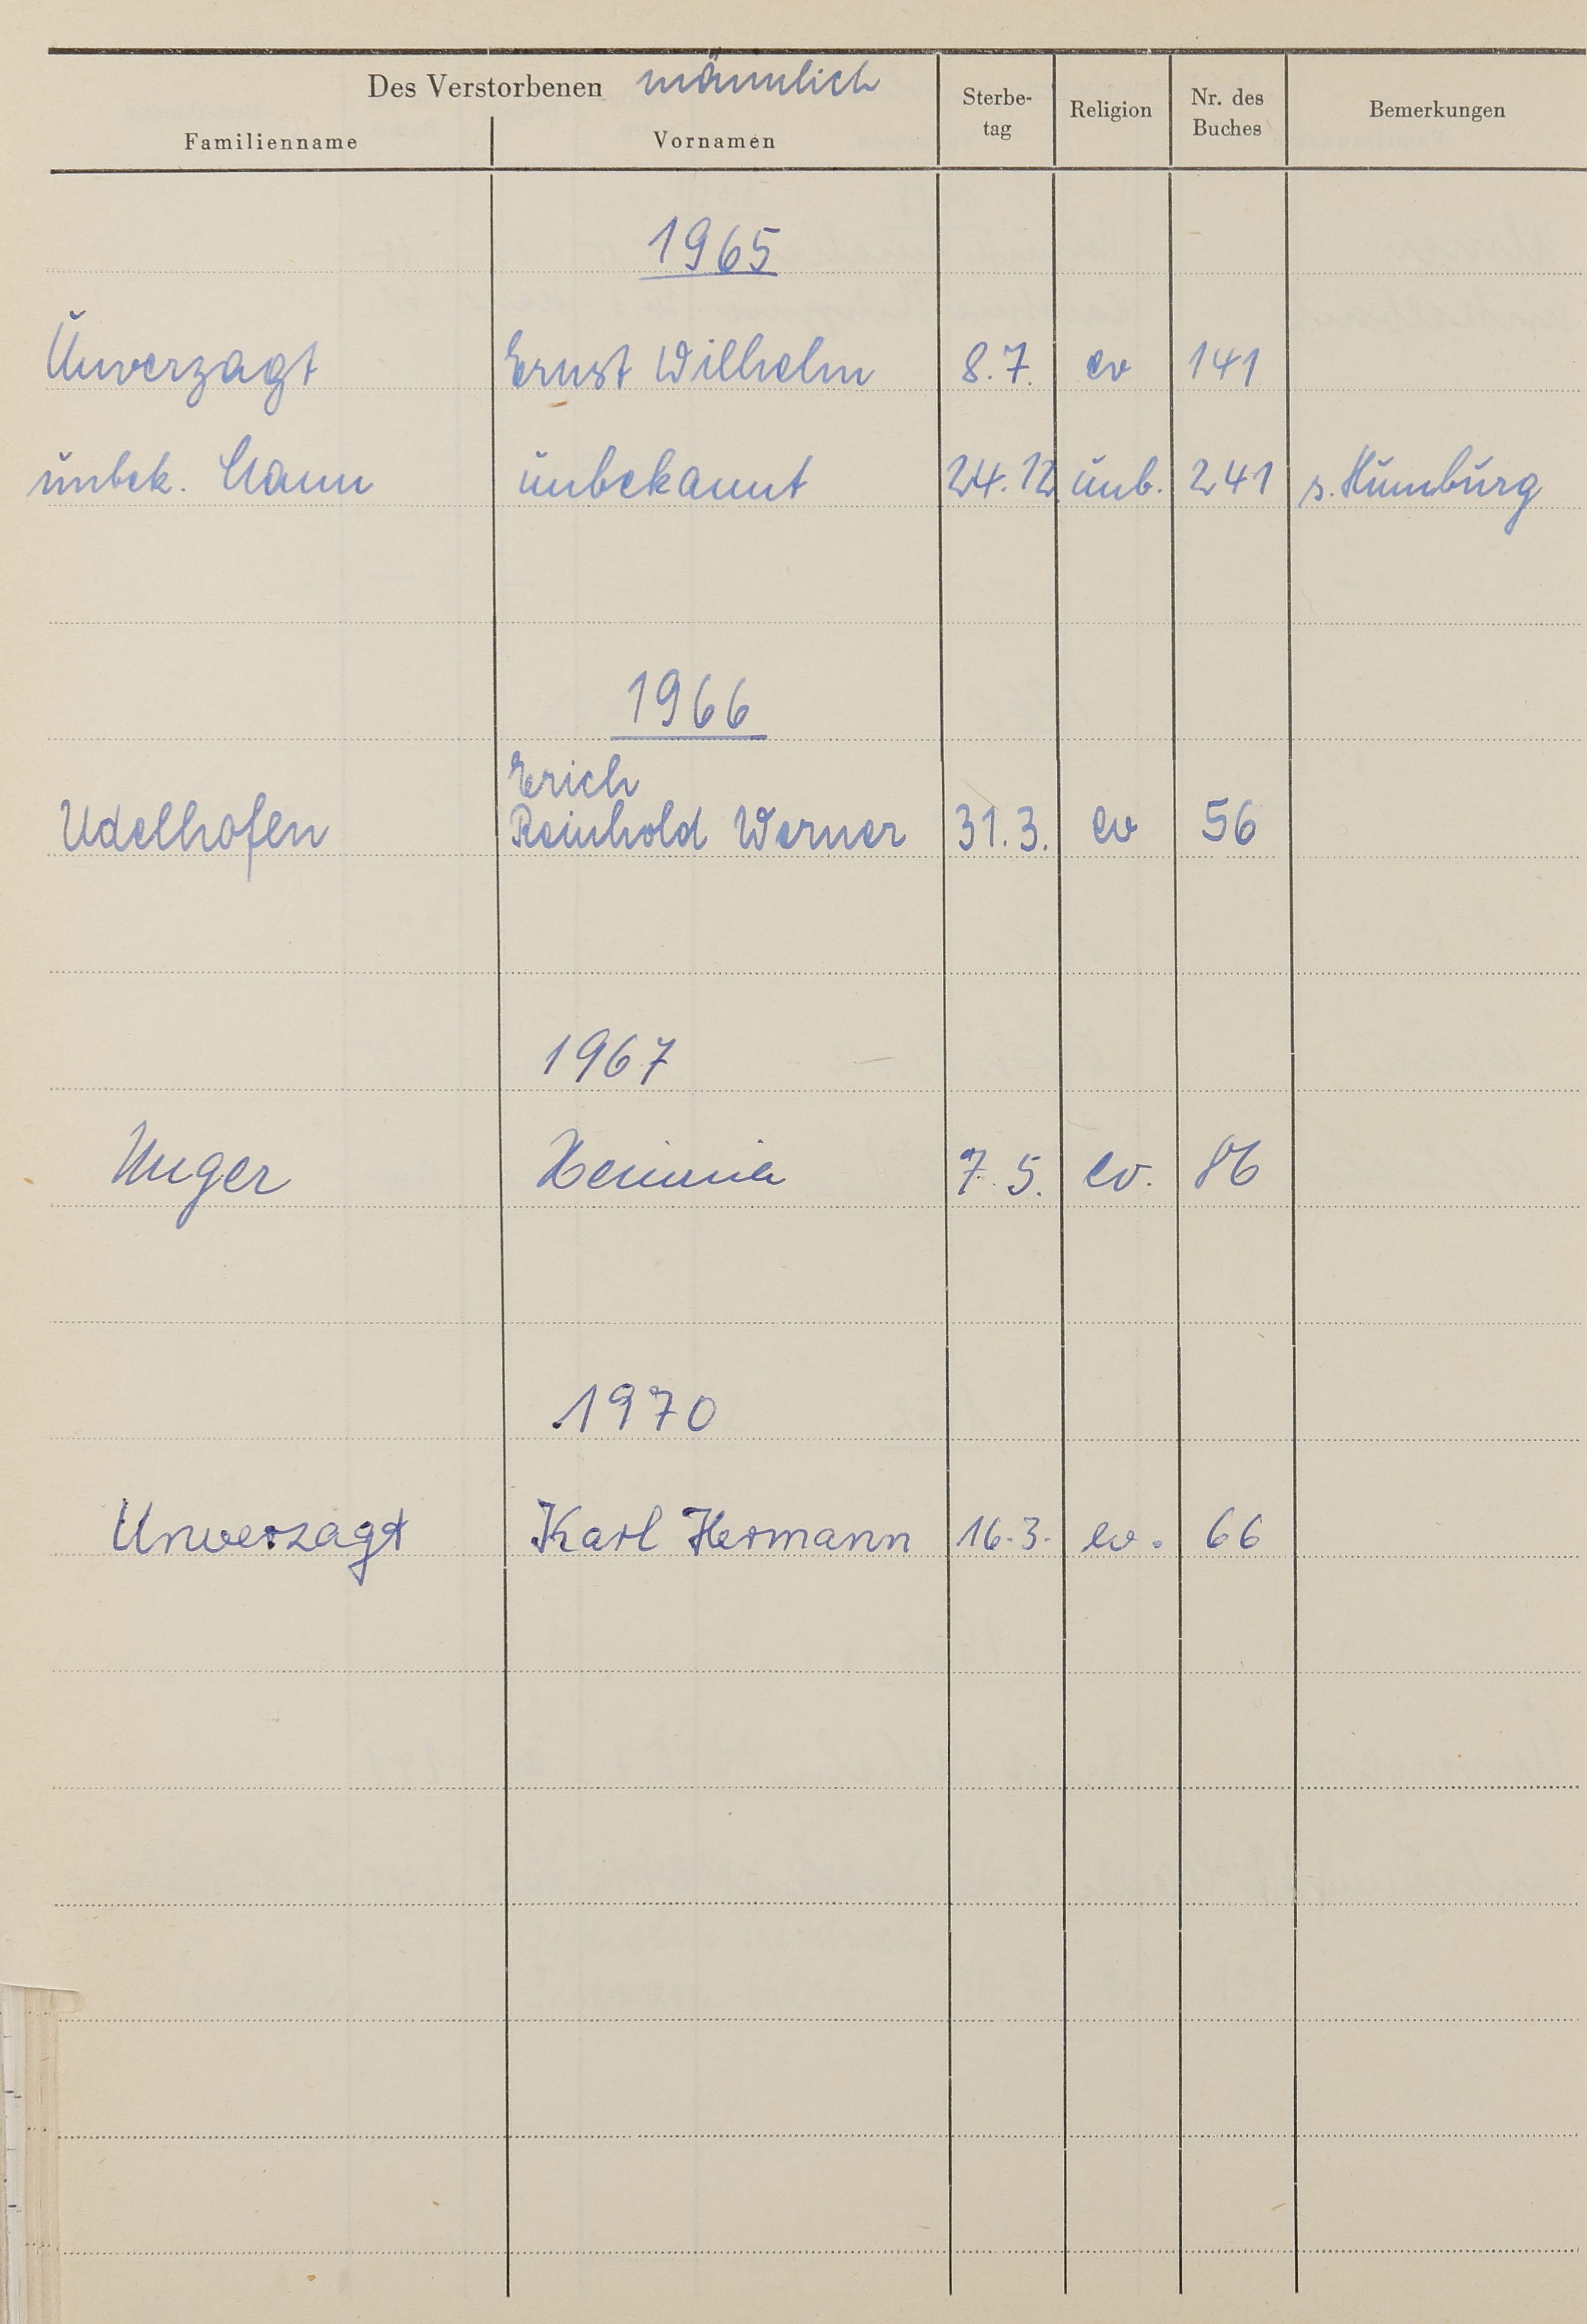 Des Verstorbenen männlich
Familienname Vornamen Sterbe-tag Religion Nr. des Buches Bemerkungen
1965
Unverzagt Ernst Wilhelm 8.7. ev 141
unbek. Mann unbekannt 24.12 unb. 241 s. Humburg
1966
Erich
Udelhofen Reinhold Werner 31.3. ev 56
1967
Unger 7.5. ev. 86
1970
Unverzagt Karl Hermann 16.3. ev. 66